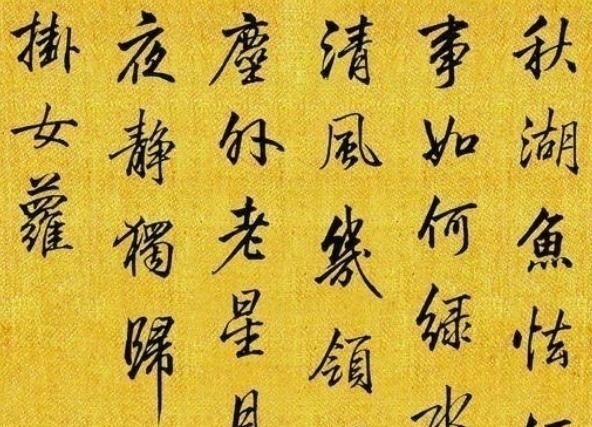 秋湖魚怯
事如何綠水
清風幾領
塵外老星月
夜静獨歸
掛女蘿